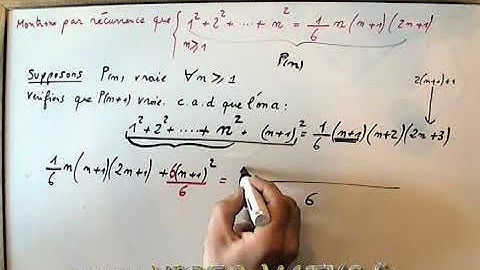 Montrons par récurrence que { 1² + 2² + ···· + n² = 1/6 n (n+1) (2n+1)
n ⩾ 1
P(n)
Supposons P(n) vraie ∀ n ⩾ 1
2(n+1)+1
vérifions que P(n+1) vraie. c.a.d que l'on a :
1² + 2² + ····· + n² + (n+1)² = 1/6 (n+1) (n+2) (2n+3)
1/6 n (n+1) (2n+1) + 6(n+1)²/6 =
6